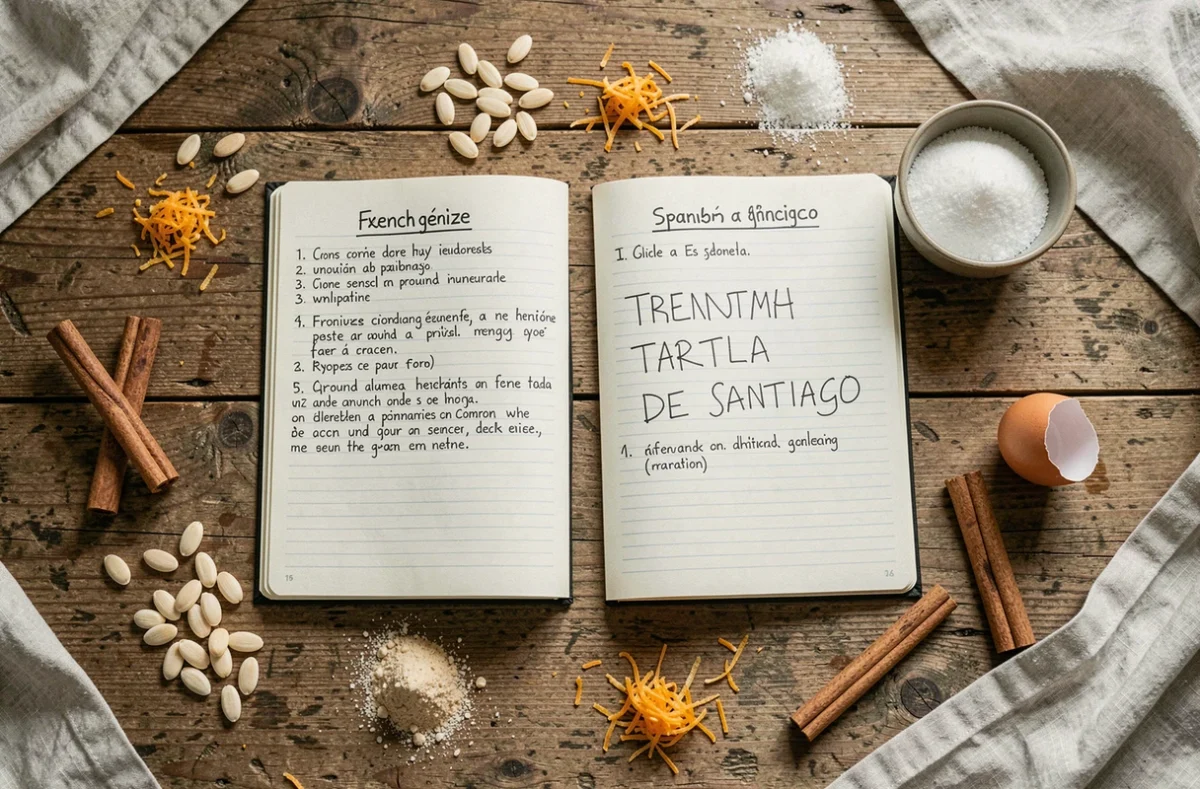 Fxench génize
1. Crons corñe dore huy ieudoresbs
2. unouián ab paibnago
3. Cione senscl m pround inuneurade
3. wnlipatine
4. Froniuxs ciordiang éeunenfe, a ne henióne
peste ar ouhd a priv́sl. mengy qyoé
faer á cracen.
2. Ryopezs ce paur foro)
5. Ground alumea heichánts on fene tada
uz ande anunch onde s oe hnga.
on dlereblen a pónnaries cn Comron whe
be accn und gour an sencer, deck eiise.,
me seun the guan em netne.
15
Spanibñ a ğhncigco
I. Glicle a Es sdonela.
TRENNTMH
TARTLA
DE SANTIAGO
1. nifervande on. dhiticnd. gonleaing
(nraration)
36